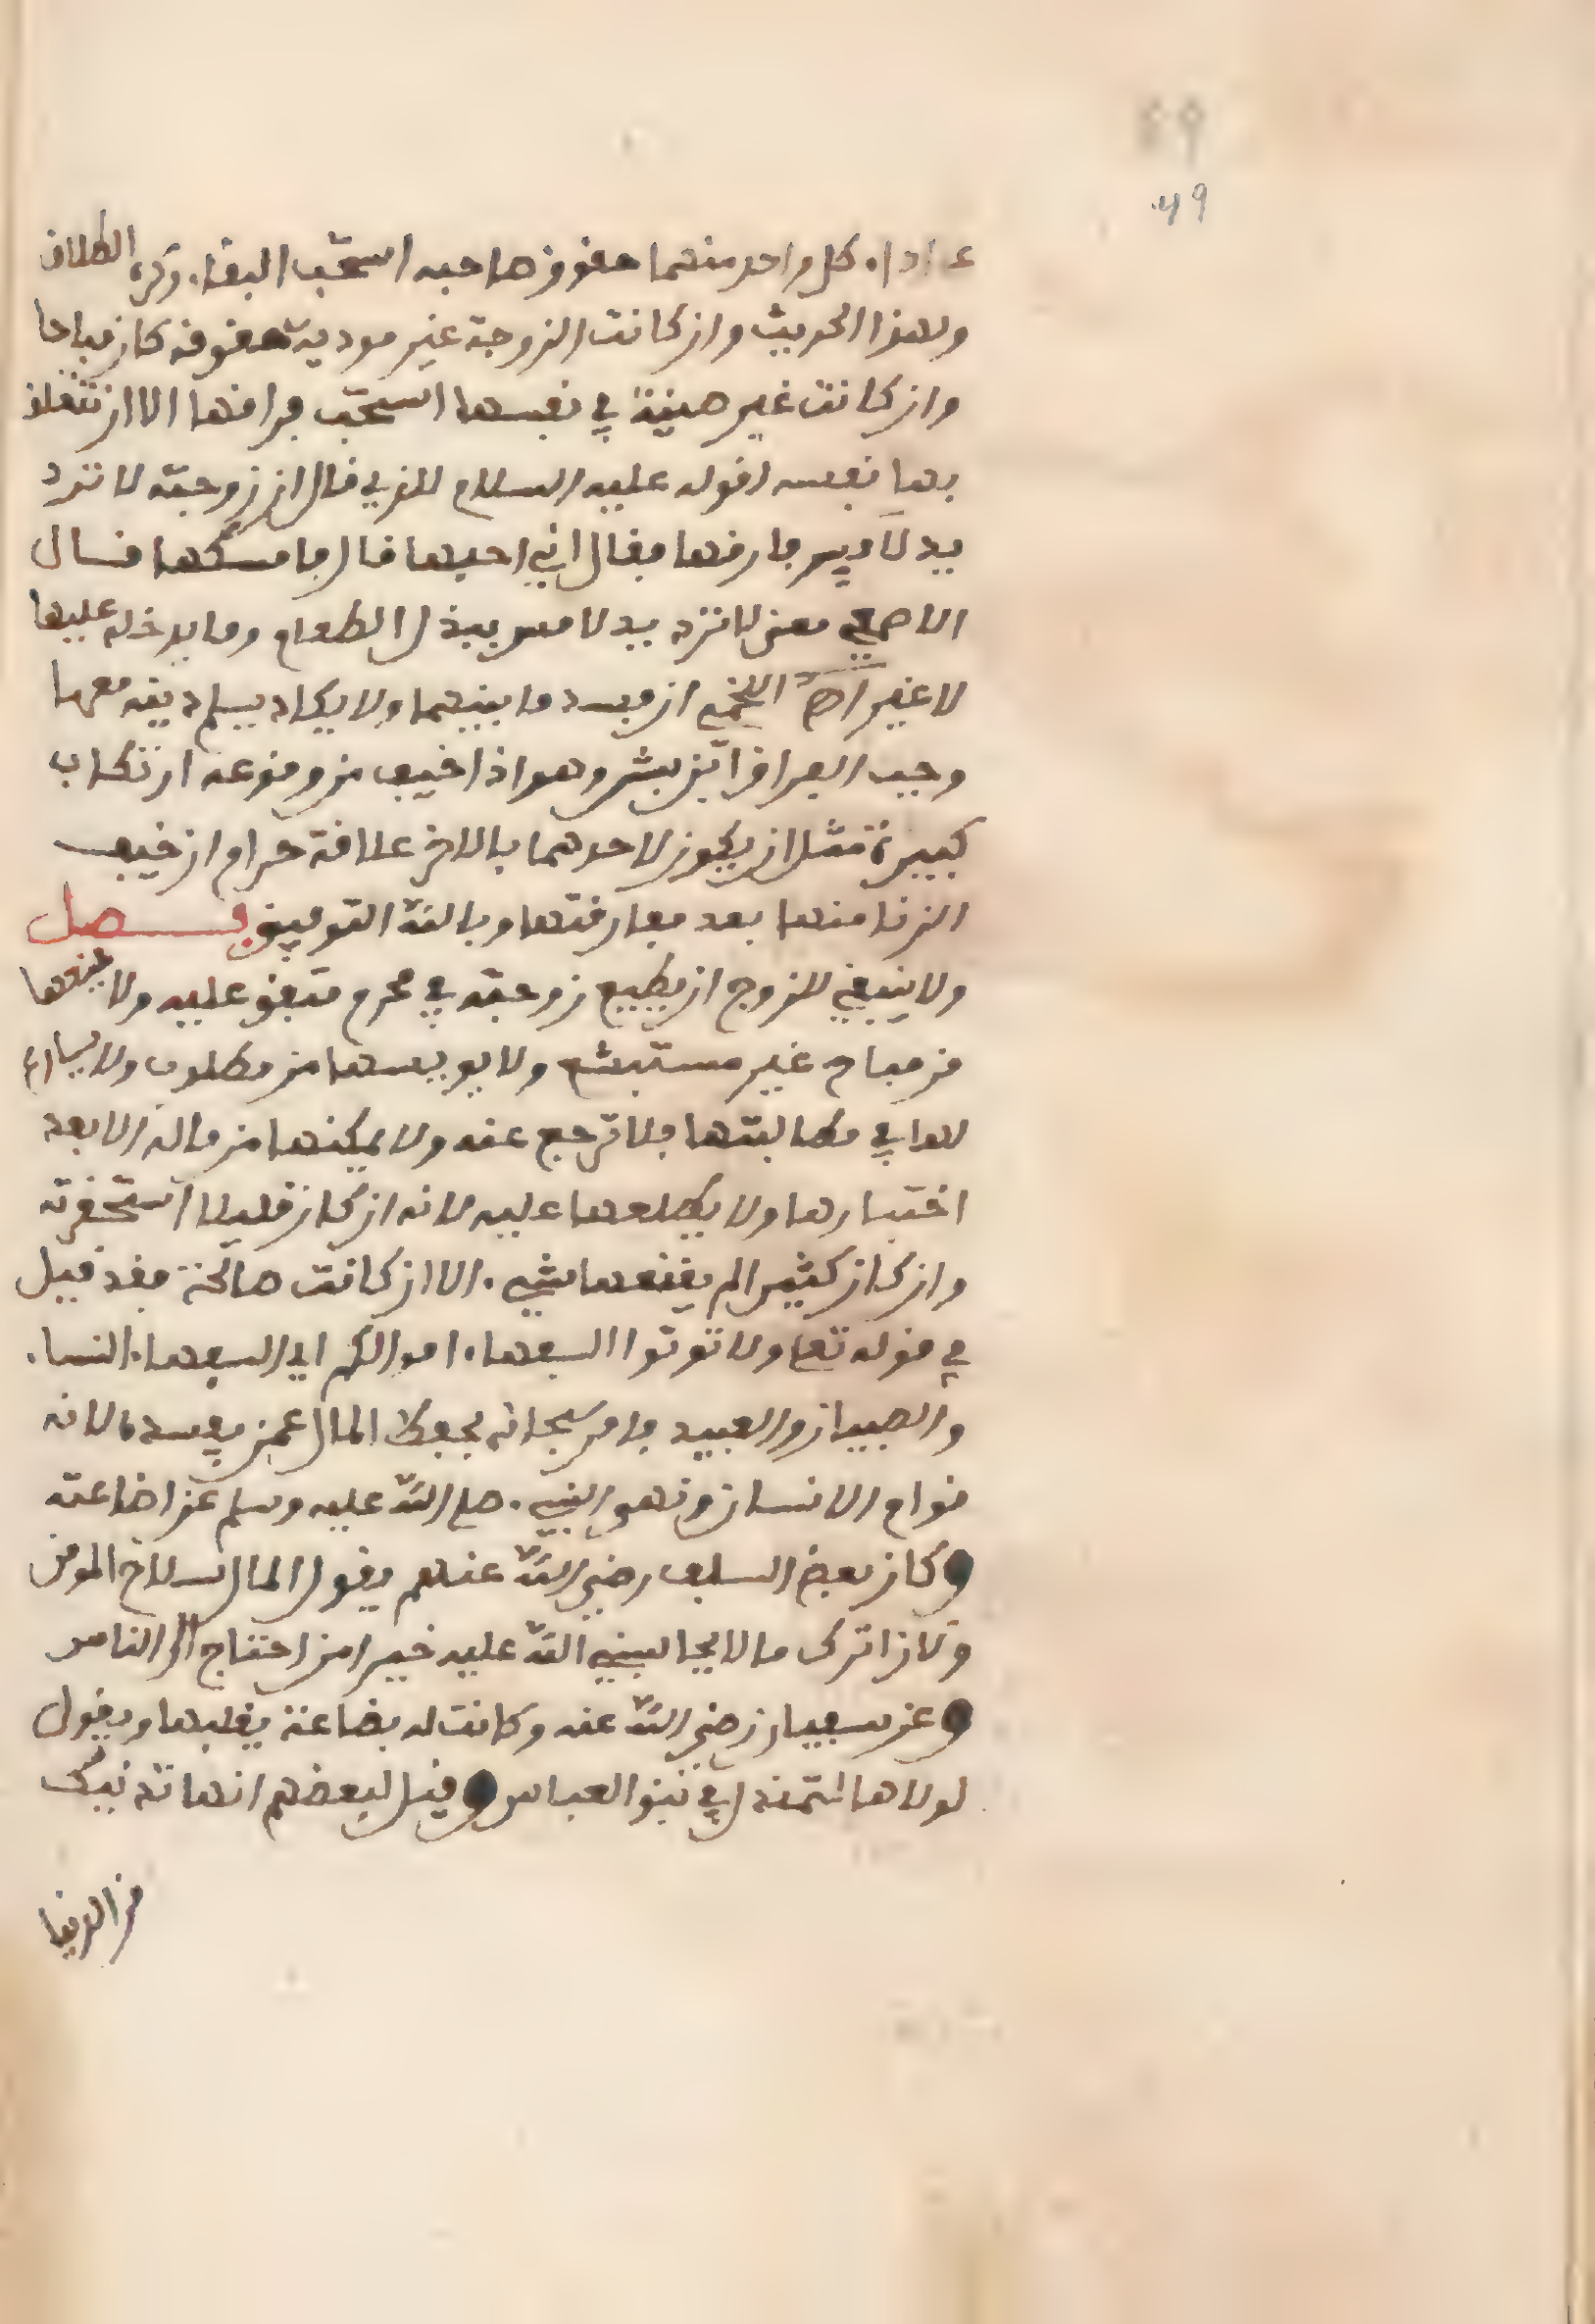 ٤٩
49
على اداء كل واحد منهما حقوق صاحبه استحب البقاء وكره الطلاق
ولهذا الحديث وان كانت الزوجة غير مودية حقوقه كان مباحا
وان كانت غير صينة في نفسها استحب فراقها الا ان تتعلق
بها نفسه لقوله عليه السلام للذي قال ان زوجته لا ترد
يد لامس فارقها فقال اني احبها قال فامسكها قال
الاصمعي معنى لا ترد يد لامس ببذل الطعام وما يدخله عليها
لا غير اهـ اللخمي ان فسد ما بينهما ولا يكاد يسلم دينه معها
وجب الفراق ابن بشير وهو اذا خيف من وقوعه ارتكاب
كبيرة مثل ان يكون لاحدهما بالاخر علاقة حرام ان خيف
الزنا منها بعد مفارقتها وبالله التوفيق فصل
ولا ينبغي للزوج ان يطيع زوجته في محرم متفق عليه ولا يمنعها
من مباح غير مستبشع ولا يويسها من مطلوب ولا يسارع
لها في مطالبتها فلا ترجع عنه ولا يمكنها من ماله الا بعد
اختبارها ولا يطلعها عليه لانه ان كان قليلا استحقرته
وان كان كثيرا لم يقنعها شيء الا ان كانت صالحة فقد قيل
في قوله تعلى ولا توتوا السفهاء اموالكم اي السفهاء النساء
والصبيان والعبيد فامر سبحانه بحفظ المال عمن يفسده لانه
قوام الانسان ونهى النبي صلى الله عليه وسلم عن اضاعته
وكان بعض السلف رضي الله عنهم يقول المال سلاح المومن
ولان اترك مالا يحاسبني الله عليه خير من احتاج الى الناس
وعن سفيان رضي الله عنه وكانت له بضاعة يقلبها ويقول
لولاها لتمندل بي بنو العباس وقيل لبعضهم انها تدنيك
من الدنيا